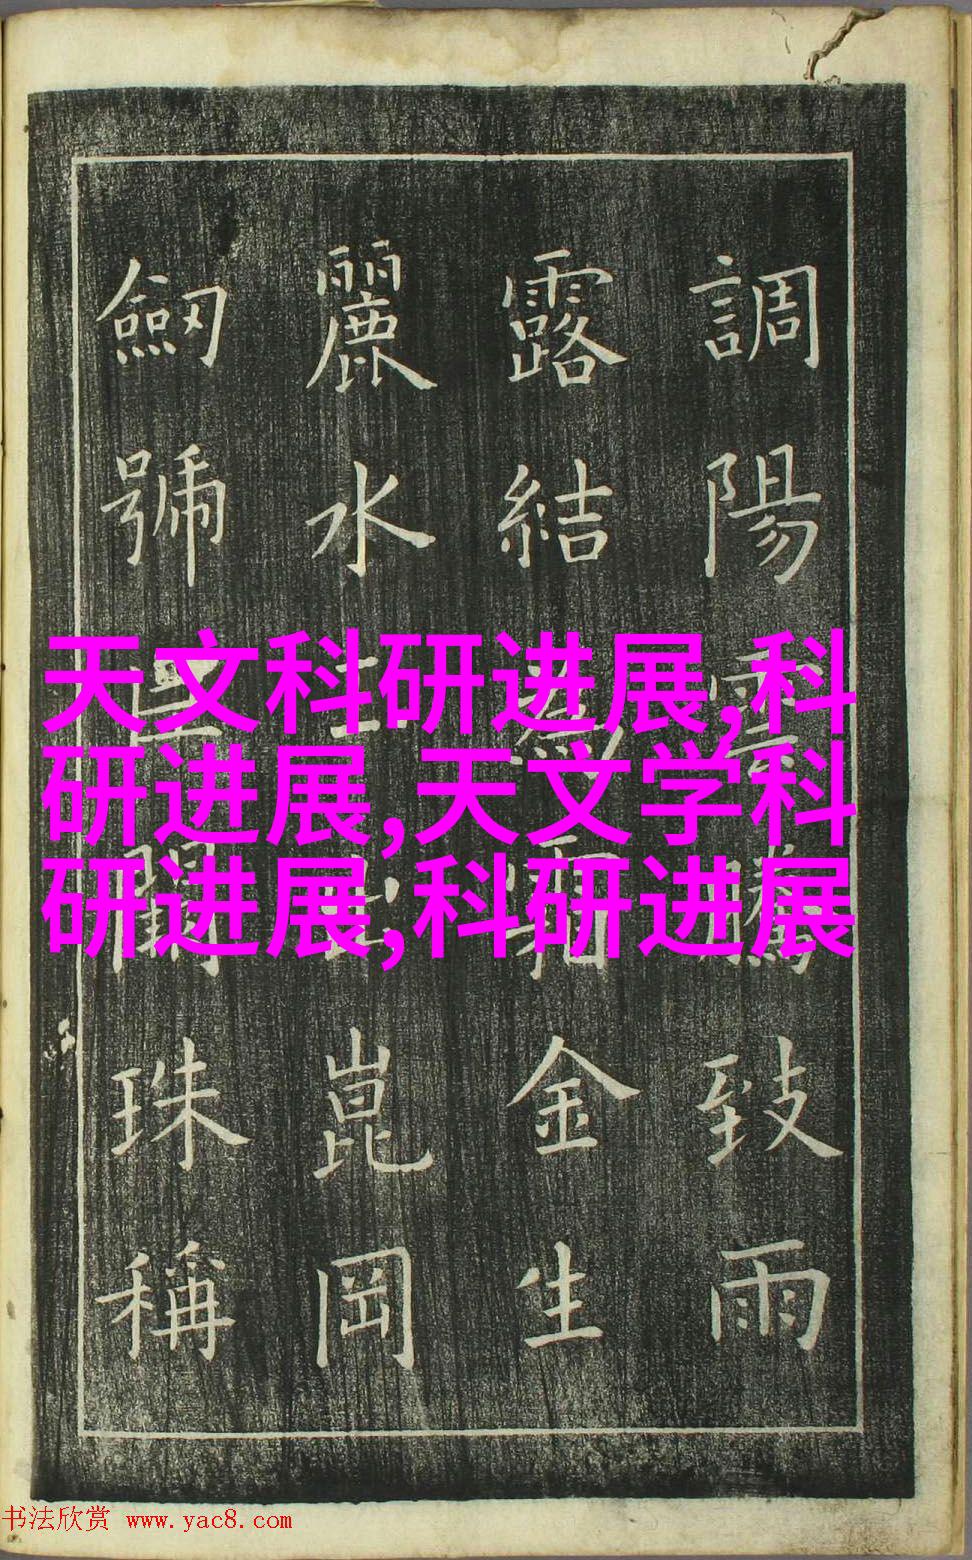 調陽雲騰致雨
露結為霜金生
麗水玉出崑岡
劒號巨闕珠稱
天文科研进展,科
研进展,天文学科
研进展,科研进展
书法欣赏 www.yac8.com